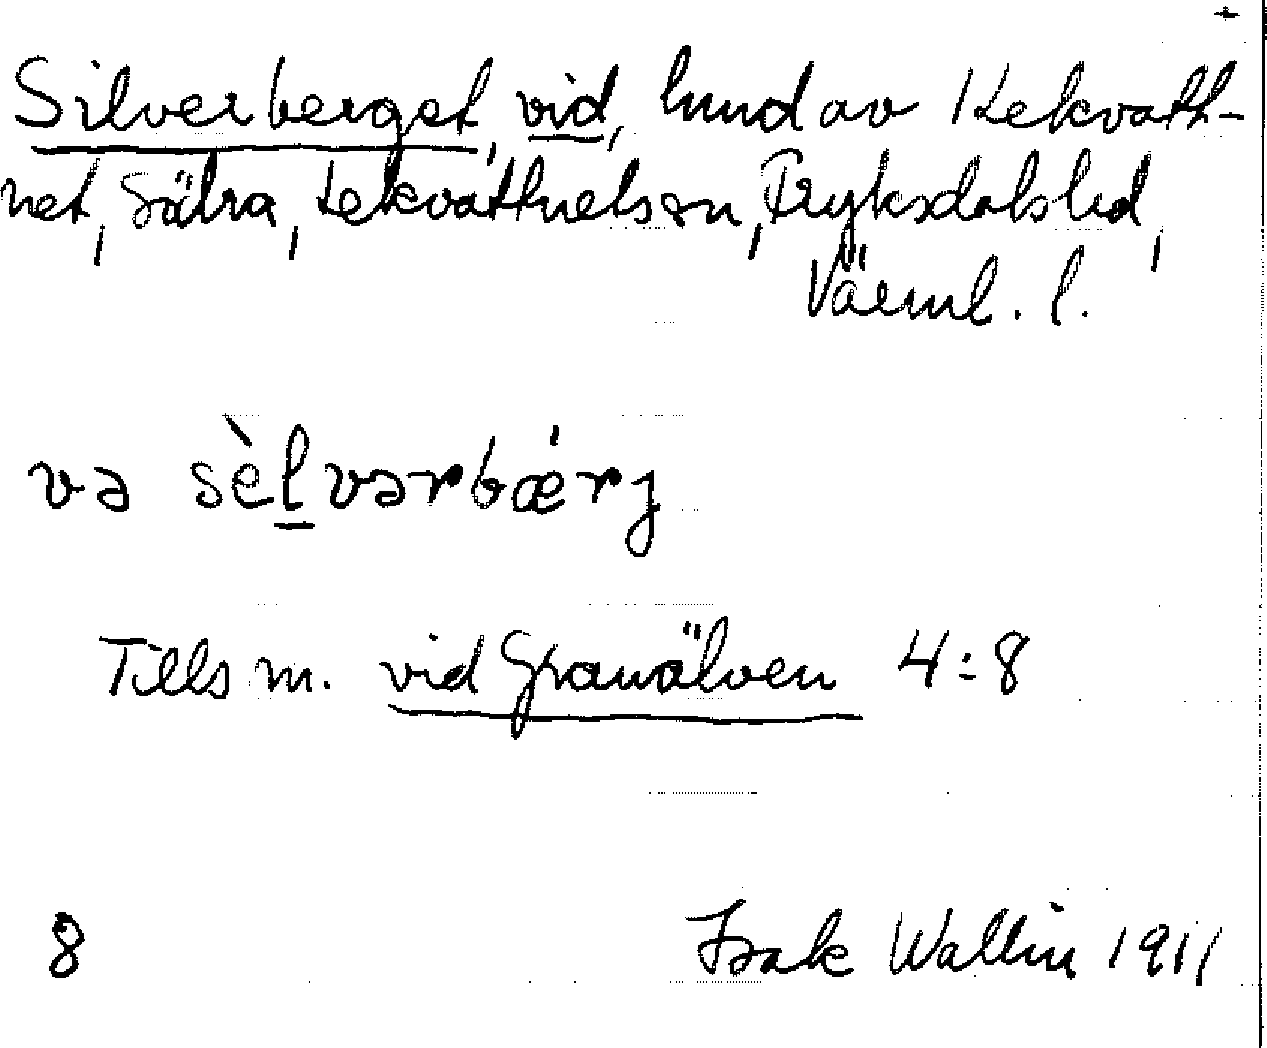 +
Silverberget, vid, hmd av Kekvatt-
net, Sätra, Lekvattnets sn, Fryksdals hd,
Värml. l.
və sèl̲vərbǽrj
Tills m. vid Granälven 4:8
8 Isak Wallin 1911